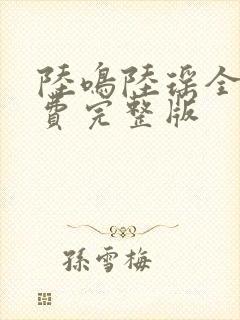 陸鳴陸瑤全
費完整版
孫雪梅